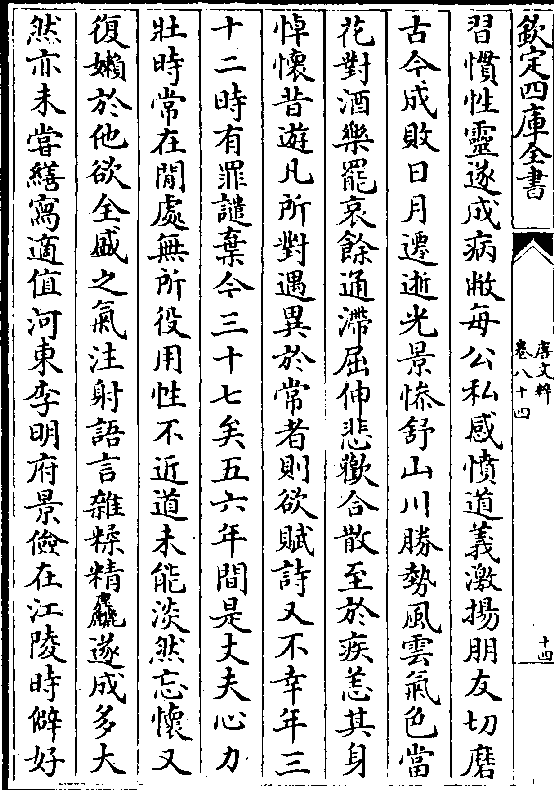 欽定四庫全書
唐文粹
卷八十四
十四
習慣性靈遂成病敝每公私感憤道義激揚朋友切磨
古今成敗日月遷逝光景慘舒山川勝勢風雲氣色當
花對酒樂罷哀餘通滯屈伸悲歡合散至於疾恙其身
悼懷昔遊凡所對遇異於常者則欲賦詩又不幸年三
十二時有罪譴棄今三十七矣五六年間是丈夫心力
壯時常在閒處無所役用性不近道未能淡然忘懷又
復嬾於他欲全盛之氣注射語言雜糅精麤遂成多大
然亦未嘗繕寫適值河東李明府景儉在江陵時僻好